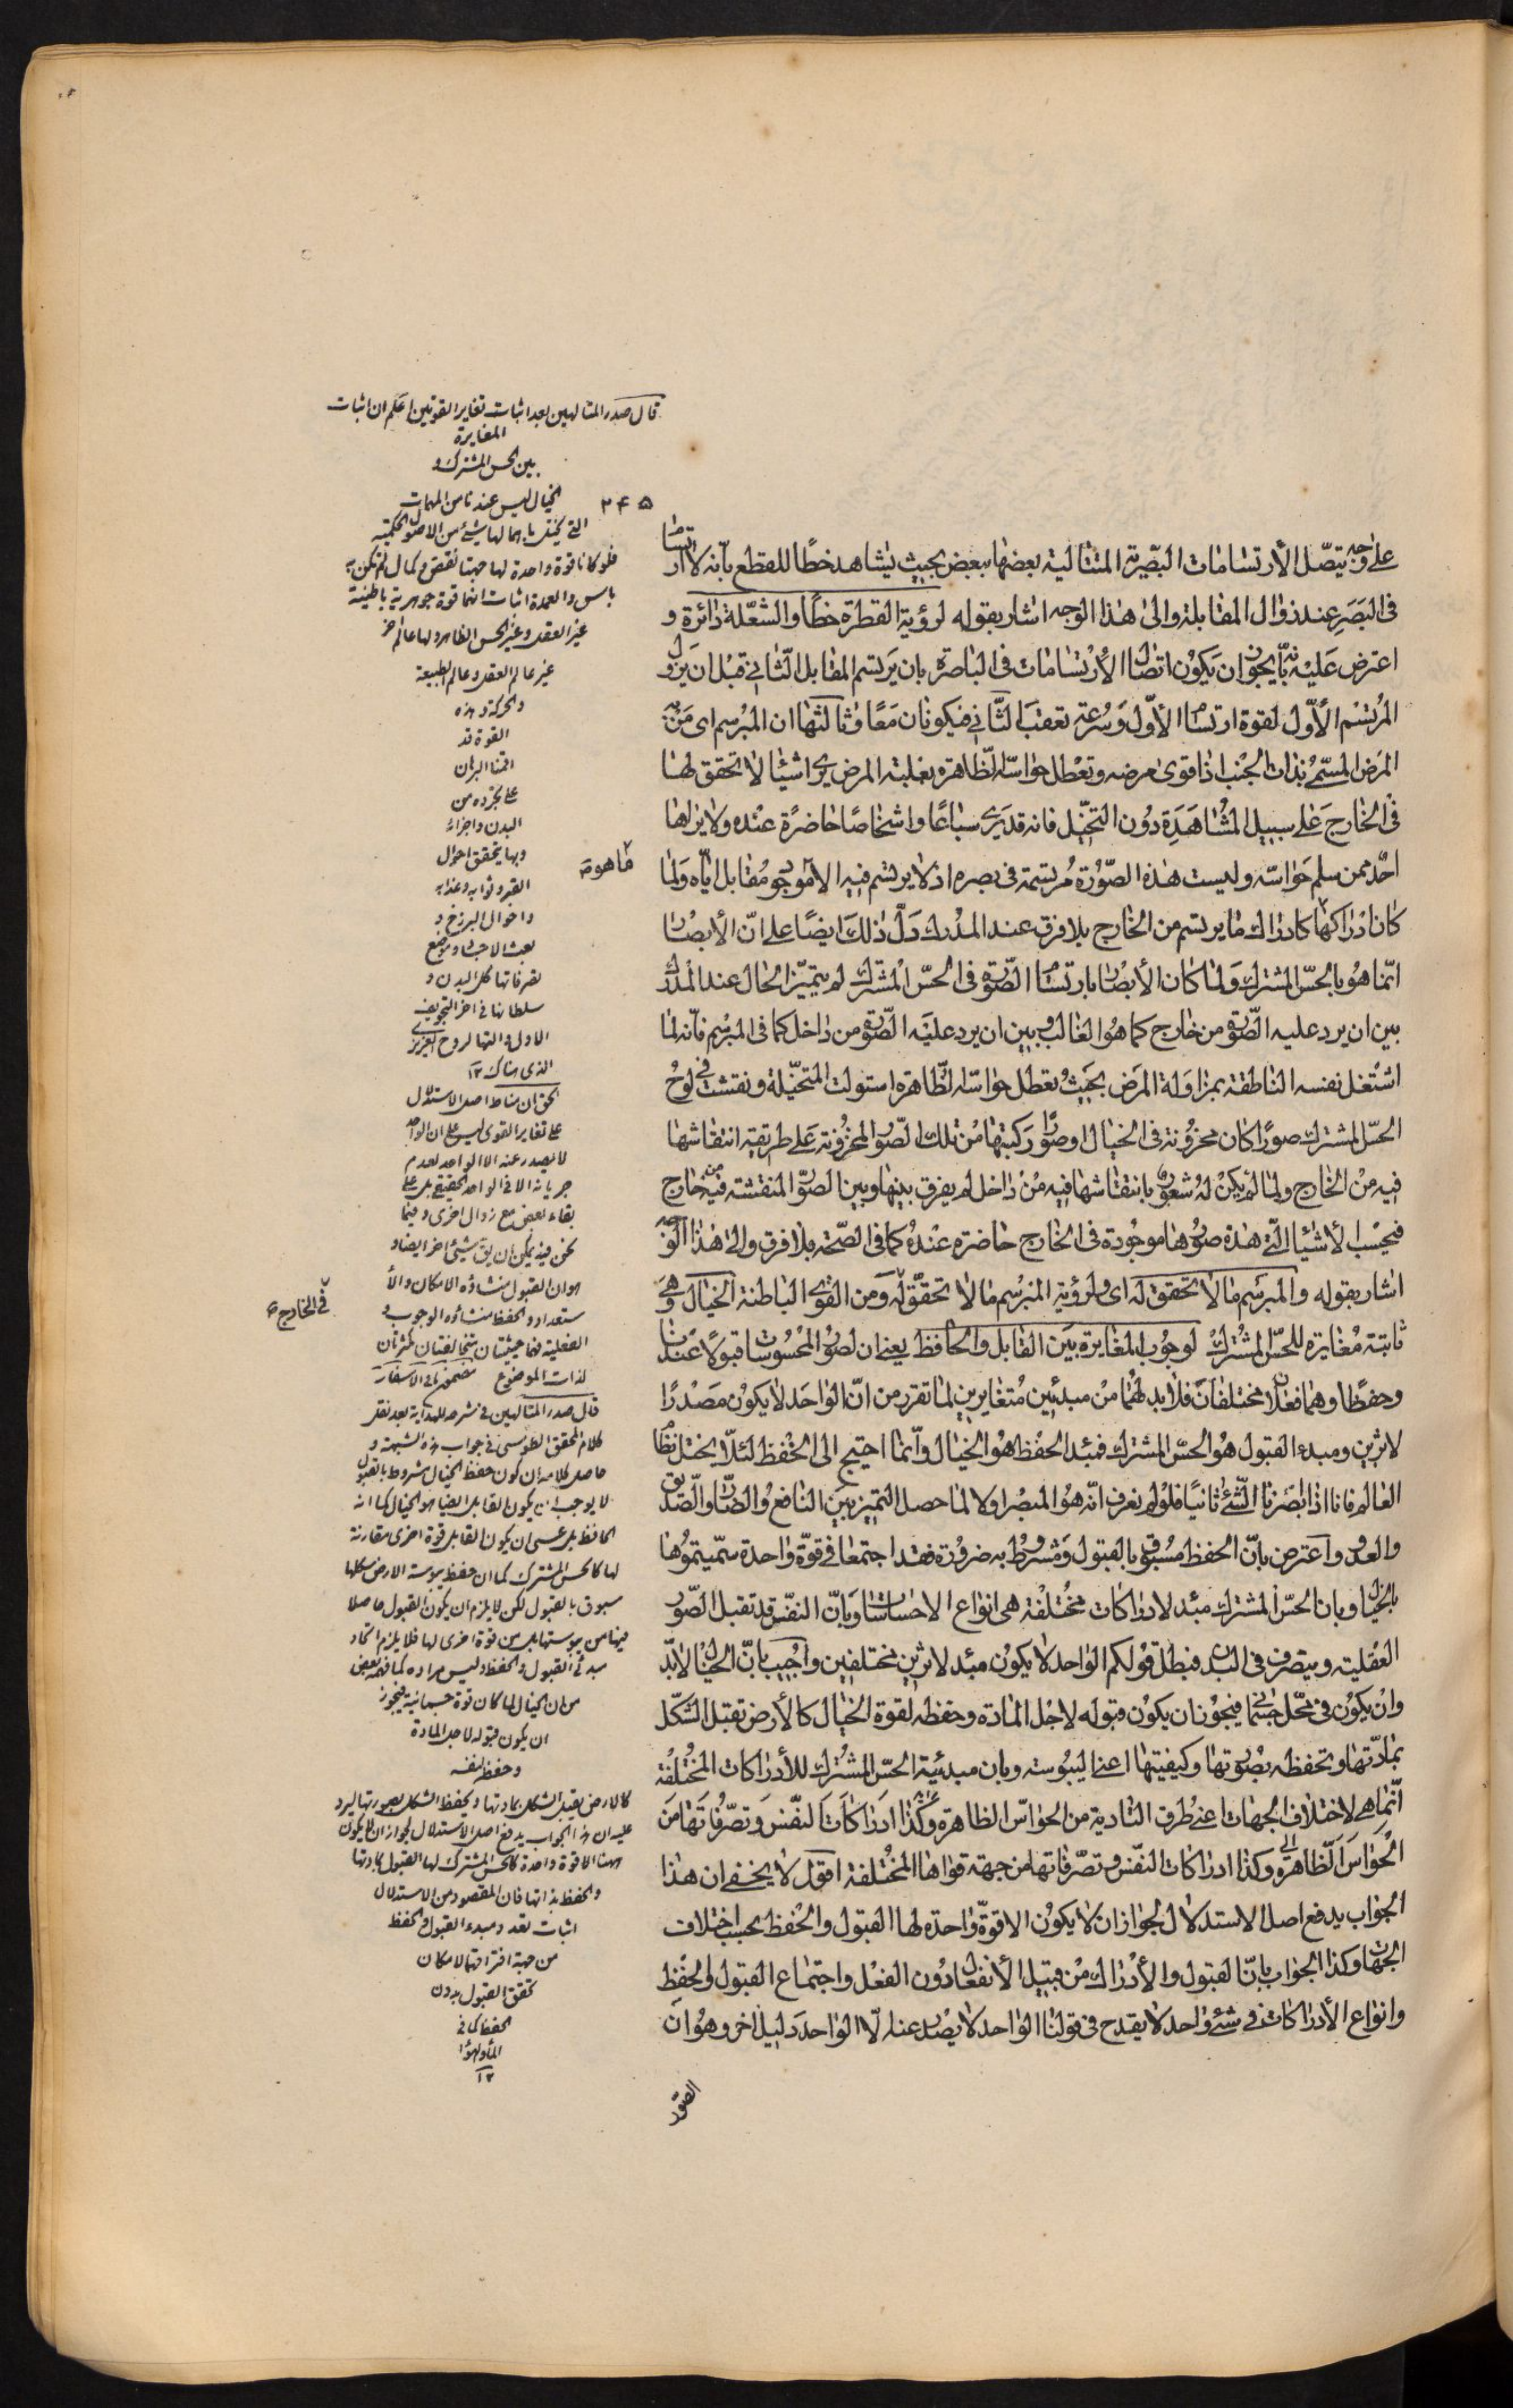 ٢٤٥
على وجه يتصل الأرتسامات البصرية المتتالية بعضها ببعض بحيث يشاهد خطا للقطع بأنه لا ارتسام
فى البصر عند زوال المقابلة والى هذا الوجه اشار بقوله لرؤية القطرة خطا والشعلة دائرة و
اعترض عليه بأنه يجوز ان يكون اتصال الأرتسامات فى الباصرة بان يرتسم المقابل الثانى قبل ان يزول
المرتسم الأول لقوة ارتسام الأول وسرعة تعقب الثانى فيكونان معا وثالثها ان المبرسم اى من به
المرض المسمى بذات الجنب اذا قوى مرضه وتعطل حواسه الظاهرة بغلبة المرض يرى اشياء لا تحقق لها
فى الخارج على سبيل المشاهدة دون التخيل فانه قد يرى سباعا واشخاصا حاضرة عنده ولا يراها
احد ممن سلم حواسه وليست هذه الصورة مرتسمة فى بصره اذ لا يرتسم فيه الا ما هو موجود مقابل اياه ولما
كان ادراكها كادراك ما يرتسم من الخارج بلا فرق عند المدرك دل ذلك ايضا على ان الأبصار
انما هو بالحس المشترك ولما كان الأبصار بارتسام الصورة فى الحس المشترك لم يتميز الحال عند المدرك
بين ان يرد عليه الصورة من خارج كما هو الغالب وبين ان يرد عليه الصورة من داخل كما فى المبرسم فأنه لما
اشتغل نفسه الناطقة بمزاولة المرض بحيث تعطل حواسه الظاهرة استولت المتخيلة ونقشت فى لوح
الحس المشترك صورا كان مخزونة فى الخيال او صورا ركبتها من تلك الصور المخزونة على طريقة انتقاشها
فيه من الخارج ولما لم يكن له شعور بانتقاشها فيه من داخل لم يفرق بينها وبين الصور المنقشة فيه من خارج
فيحسب الأشياء التى هذه صورها موجودة فى الخارج حاضرة عنده كما فى الصحة بلا فرق والى هذا الوجه
اشار بقوله والمبرسم ما لا تحقق له اى ولرؤية المبرسم ما لا تحقق له فى الخارج ومن القوى الباطنة الخيال وهى
ثابتة مغايرة للحس المشترك لوجوب المغايرة بين القابل والحافظ يعنى ان لصور المحسوسات قبولا عندنا
وحفظا وهما فعلان مختلفان فلا بد لهما من مبدئين متغايرين لما تقرر من ان الواحد لا يكون مصدرا
لاثرين ومبدء القبول هو الحس المشترك فمبدء الحفظ هو الخيال وانما احتيج الى الحفظ لئلا يختل نظام
العالم فانا اذا ابصرنا الشئ ثانيا فلو لم نعرف انه هو المبصر اولا لما حصل التميز بين النافع والضار والصديق
والعدو واعترض بان الحفظ مسبوق بالقبول ومشروط به ضرورة فقد اجتمعا فى قوة واحدة سميتموها
بالخيال وبان الحس المشترك مبدء لادراكات مختلفة هى انواع الاحساسات وبان النفس قد تقبل الصور
العقلية ويتصرف فى البدن فبطل قولكم الواحد لا يكون مبدء لاثرين مختلفين واجيب بان الخيال لابد
وان يكون فى محل جسمانى فيجوز ان يكون قبوله لاجل المادة وحفظه لقوة الخيال كالأرض تقبل الشكل
بمادتها وتحفظه بصورتها وكيفيتها اعنى اليبوسة وبان مبدئية الحس المشترك للأدراكات المختلفة
انما هى لاختلاف الجهات اعنى طرق التادية من الحواس الظاهرة وكذا ادراكات النفس وتصرفاتها من
الحواس الظاهرة وكذا ادراكات النفس وتصرفاتها من جهة قواها المختلفة اقول لا يخفى ان هذا
الجواب يدفع اصل الاستدلال لجواز ان لا يكون الا قوة واحدة لها القبول والحفظ بحسب اختلاف
الجهات وكذا الجواب بان القبول والأدراك من قبيل الأنفعال دون الفعل واجتماع القبول والحفظ
وانواع الأدراكات فى شئ واحد لا يقدح فى قولنا الواحد لا يصدر عنه الا الواحد دليل اخر وهو ان
الصور
قال صدر المتالهين بعد اثبات تغاير القوتين اعلم ان اثبات
المغايرة
بين الحس المشترك و
الخيال ليس عندنا من المهمات
التى يختل باهمالها شئ من الاصول الحكمية
فلو كانا قوة واحدة لها جهتا نقص وكمال لم يكن به
باس والعمدة اثبات انهما قوة جوهرية باطنية
غير العقل وغير الحس الظاهر ولها عالم اخر
غير عالم العقل وعالم الطبيعة
والحركة وهذه
القوة قد
اقمنا البرهان
على تجرده من
البدن واجزائه
وبها يتحقق احوال
القبر وثوابه وعذابه
واحوال البرزخ و
بعث الاجساد وموضع
تصرفاتها كل البدن و
سلطانها فى اخر التجويف
الاول والتها الروح الغريزى
الذى هناك ١٢
الحق ان مناط اصل الاستدلال
على تغاير القوى ليس على ان الواحد
لا يصدر عنه الا الواحد لعدم
جريانه الا فى الواحد الحقيقى بل على
بقاء بعض مع زوال اخرى وفيما
نحن فيه يمكن ان يق شئ اخر ايضا و
هو ان القبول منشاؤه الامكان والأ
ستعداد والحفظ منشاؤه الوجوب و
الفعلية فهما حيثيتان متخالفتان مكثرتان
لذات الموضوع
قال صدر المتالهين فى شرحه للهداية بعد نقل
كلام المحقق الطوسى فى جواب هذه الشبهة و
حاصل كلامه ان كون حفظ الخيال مشروط بالقبول
لا يوجب ان يكون القابل ايضا هو الخيال كما انه
الحافظ بل عسى ان يكون القابل قوة اخرى مقارنة
لها كالحس المشترك كما ان حفظ يبوسة الارض شكلها
مسبوق بالقبول لكن لا يلزم ان يكون القبول حاصلا
فيها من يبوستها بل من قوة اخرى لها فلا يلزم اتحاد
مبدئى القبول والحفظ وليس مراده كما فهمه بعض
من ان الخيال لما كان قوة جسمانية فيجوز
ان يكون قبوله لاجل المادة
وحفظه لنفسه
كالارض يقبل الشكل بمادتها ويحفظ الشكل بصورتها ليرد
عليه ان هذا الجواب يدفع اصل الاستدلال لجواز ان لا يكون
ههنا الا قوة واحدة كالحس المشترك لها القبول بمادتها
والحفظ بذاتها فان المقصود من الاستدلال
اثبات تعدد مبدء القبول والحفظ
من جهة افتراقهما لامكان
تحقق القبول بدون
الحفظ كما فى
الماء والهواء
١٢